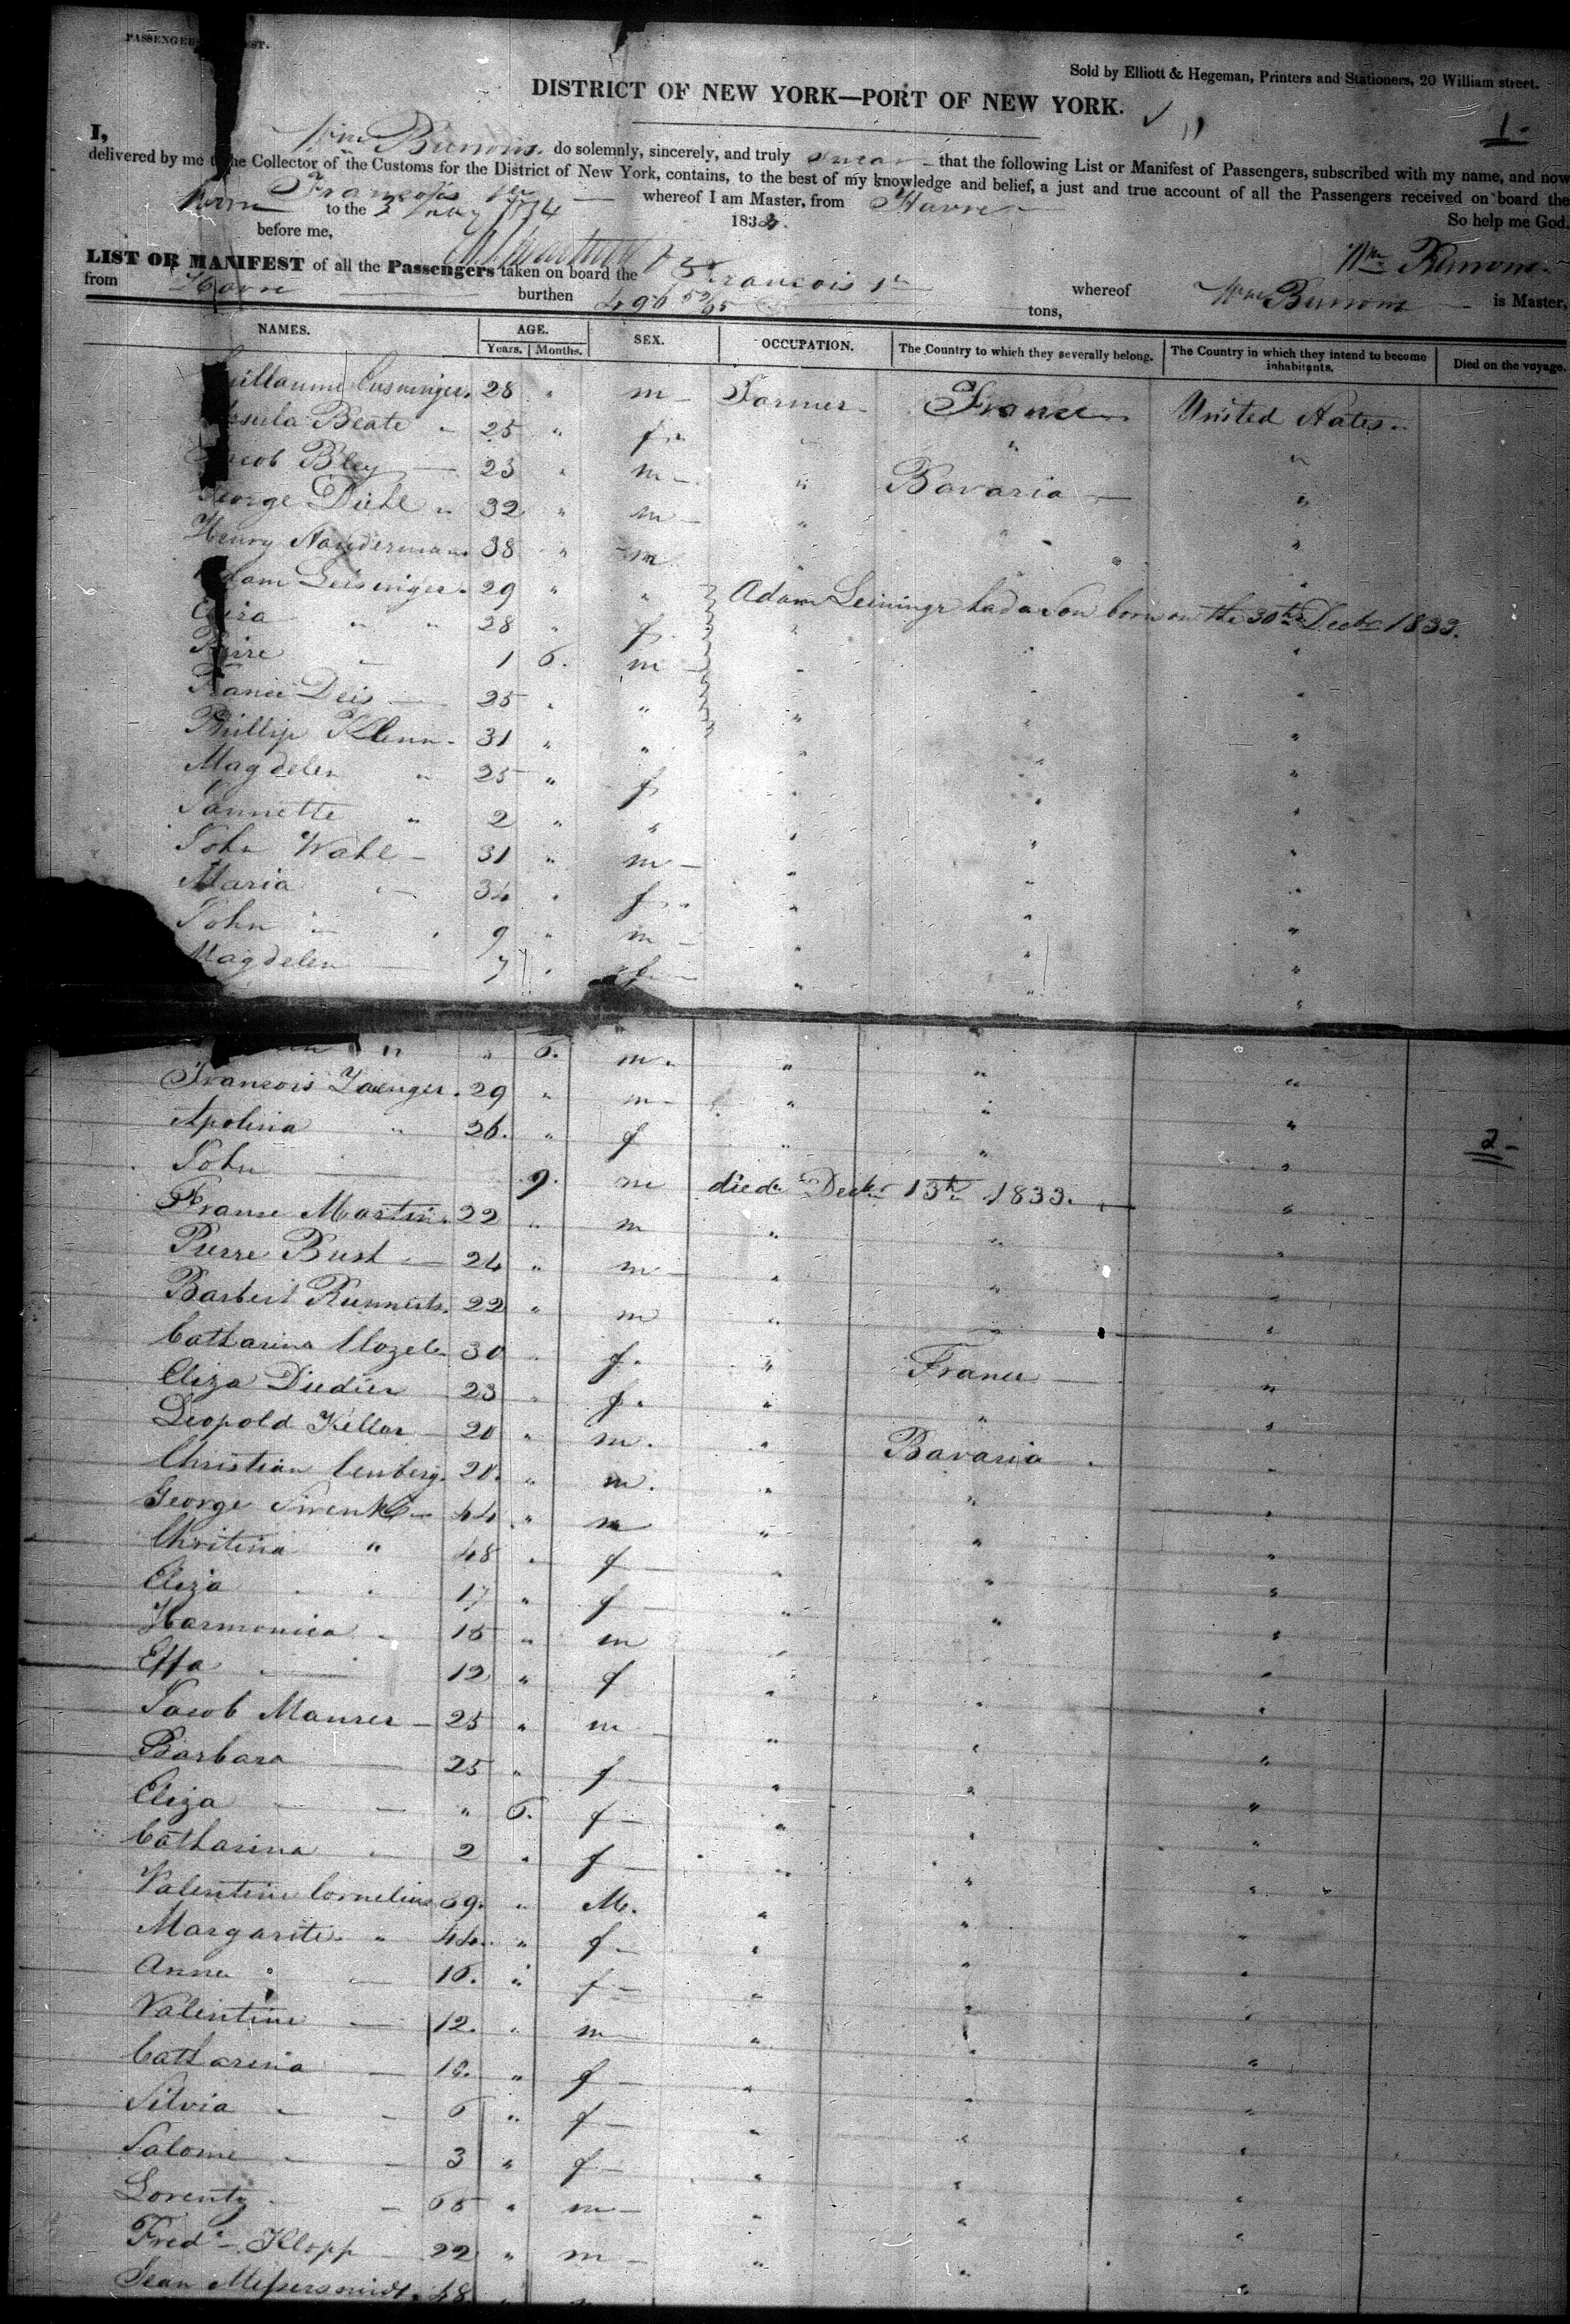 DISTRICT OF NEW YORK—PORT OF NEW YORK.
Sold by Elliott & Hegeman, Printers and Stationers, 20 William street.
1
I, Wm do solemnly, sincerely, and truly swear that the following List or Manifest of Passengers, subscribed with my name, and now
delivered by me to the Collector of the Customs for the District of New York, contains, to the best of my knowledge and belief, a just and true account of all the Passengers received on board the
Francois 1er whereof I am Master, from Havre
to the 3 1834 183
So help me God.
before me,
Wm
LIST OR MANIFEST of all the Passengers taken on board the Francois 1er whereof Wm is Master,
from Havre burthen 496 tons,
NAMES. AGE. SEX. OCCUPATION. The Country to which they severally belong. The Country in which they intend to become inhabitants. Died on the voyage.
Years. Months.
28 " m Farmer France United States
Beate " 25 " f " " "
Bley 23 " m " Bavaria "
George Diehl 32 " m " " "
Henry 38 " m " " "
Adam 29 " " Adam Leiningr had a Son born on the 30th Decbr 1833.
" " 28 " f " "
" 1 6. m " "
Deis 25 " " " " "
Phillip Klenn 31 " " " " "
Magdelen " 25 " f " " "
Jannette " 2 " " " " "
John Wahl 31 " m " " "
Maria " 34 " f " " "
John " 9 " m " " "
Magdelen 7 " f " " "
" " 6. m. " " "
Francois 29 " m " " "
Apolina " 26. " f " " "
2
John 9. m died Decbr 13th 1833. "
Martin 22 " m " " "
Pierre Bush 24 " m " " "
22 " m " " "
Catharina 30 " f. " France "
Eliza Diedier 23 " f. " " "
Leopold Keller 20 " m. " Bavaria "
Christian 20. " m. " " "
George 44 " m " " "
Chritina " 48 " f " " "
Eliza " 17 " f " " "
Harmonica 15 " m " " "
Effa 12 " f " " "
Jacob Maurer 25 " m " " "
Barbara 25 " f " " "
Eliza " 6. f " " "
Catharina 2 " f " " "
Valentine Cornelius 39. " M. " " "
Margarite " 44. " f " " "
Anna " 16. " f " " "
Valentine 12. " m " " "
Catharina 10. " f " " "
Silvia 6 " f " " "
Salome 3 " f " " "
Lorentz 65 " m " " "
Fred Klopp 22 " m " " "
Jean Messersmidt 48 "